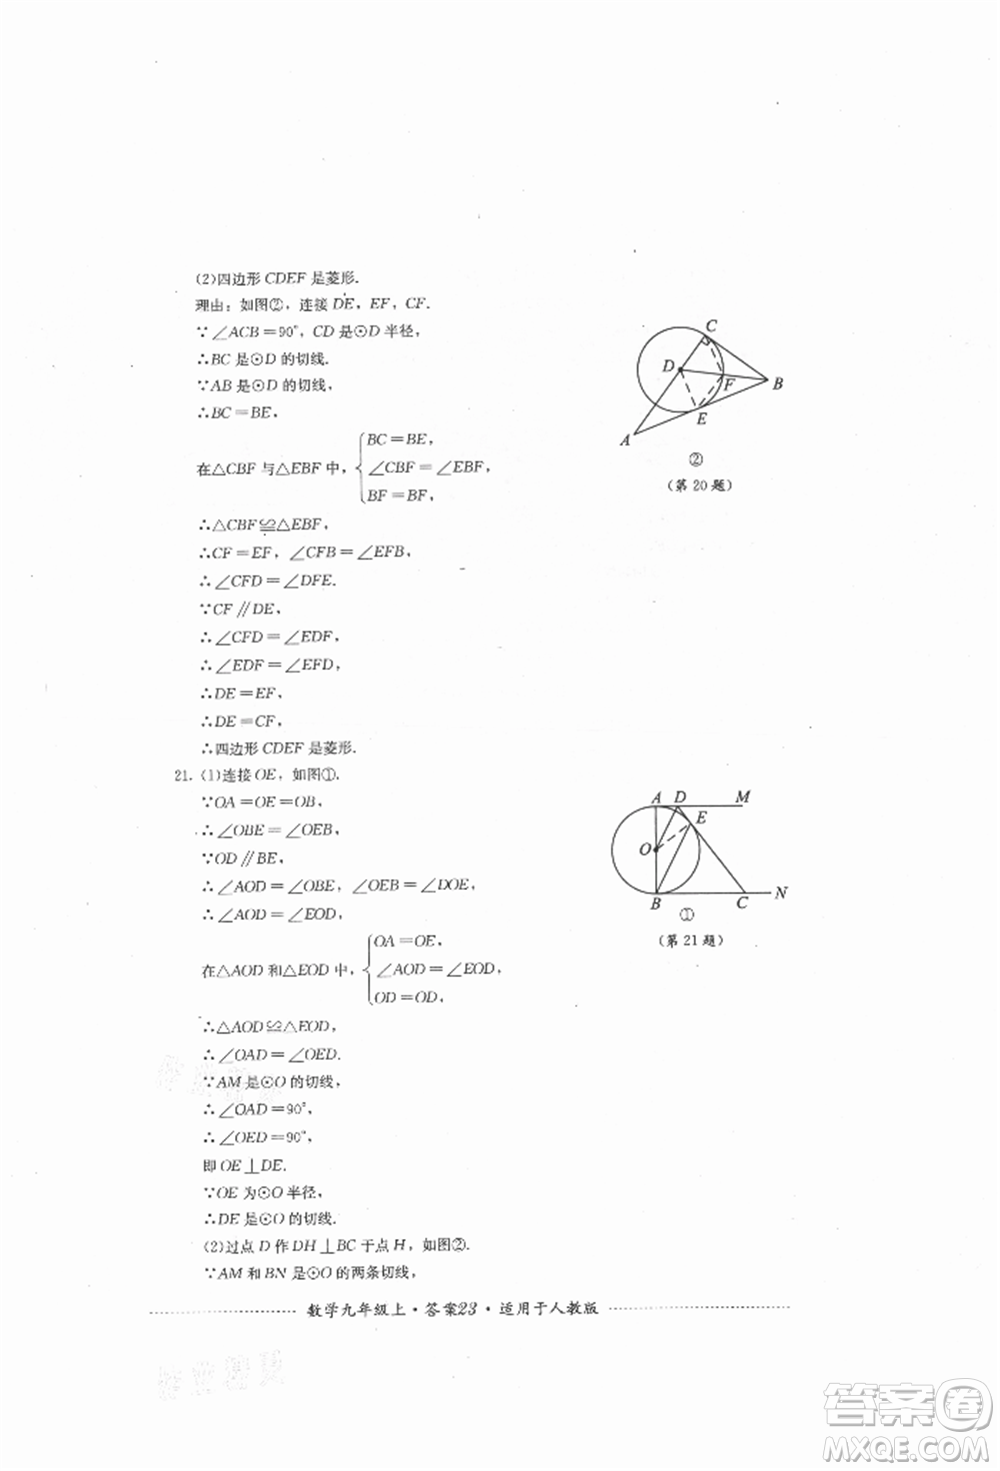 (2)四边形 CDEF 是菱形.
理由：如图②，连接 DE，EF，CF.
∵∠ACB＝90°，CD 是⊙D 半径，
∴BC 是⊙D 的切线.
∵AB 是⊙D 的切线，
∴BC＝BE，
在△CBF 与△EBF 中，
BC＝BE，
∠CBF＝∠EBF，
BF＝BF，
∴△CBF≌△EBF，
∴CF＝EF，∠CFB＝∠EFB，
∴∠CFD＝∠DFE.
∵CF∥DE，
∴∠CFD＝∠EDF，
∴∠EDF＝∠EFD，
∴DE＝EF，
∴DE＝CF，
∴四边形 CDEF 是菱形.
C
D
F
B
E
A
②
(第 20 题)
21. (1)连接 OE，如图①.
∵OA＝OE＝OB，
∴∠OBE＝∠OEB，
∵OD∥BE，
∴∠AOD＝∠OBE，∠OEB＝∠DOE，
∴∠AOD＝∠EOD，
在△AOD 和△EOD 中，
OA＝OE，
∠AOD＝∠EOD，
OD＝OD，
∴△AOD≌△EOD，
∴∠OAD＝∠OED.
∵AM 是⊙O 的切线，
∴∠OAD＝90°，
∴∠OED＝90°，
即 OE⊥DE.
∵OE 为⊙O 半径，
∴DE 是⊙O 的切线.
(2)过点 D 作 DH⊥BC 于点 H，如图②.
∵AM 和 BN 是⊙O 的两条切线，
A D M
E
O
B C N
①
(第 21 题)
数学九年级上·答案23·适用于人教版
答案圈
MXQE.COM